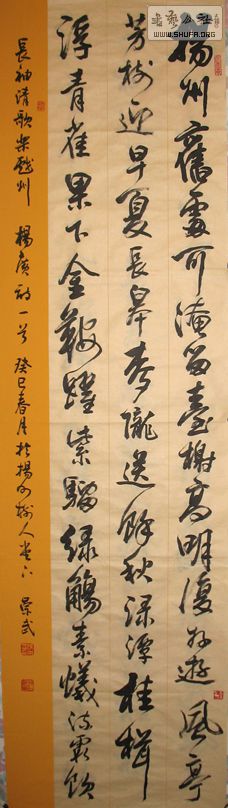 書艺公社
WWW.SHUFA.ORG
揚州舊處可淹留臺榭高明復好遊風亭
芳樹迎早夏長皋麥隴送餘秋渌潭桂楫
浮青雀果下金鞍躍紫騮緑觴素蟻流霞飲
長袖清歌樂戲州 楊廣詩一首 癸巳春月於揚州樹人堂